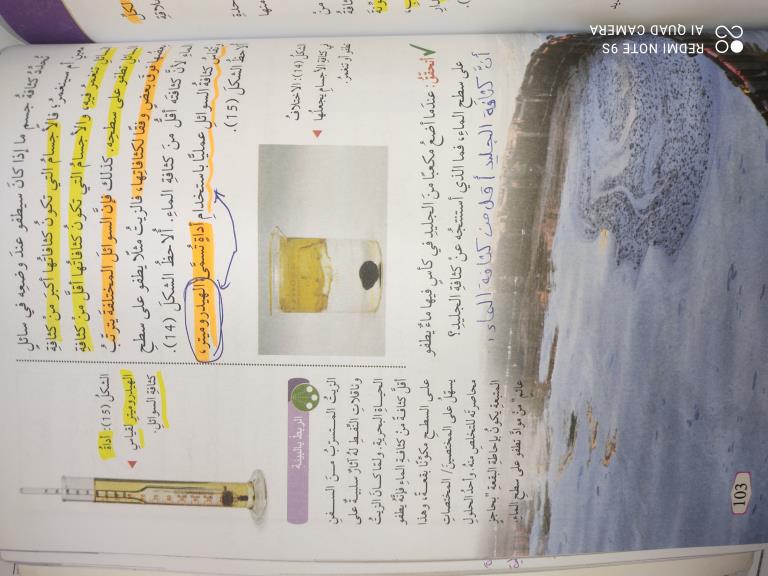 تحدد كثافة جسم ما إذا كان سيطفو عند وضعه في سائل
معين أم سينغمر؛ فالأجسام التي تكون كثافاتها أكبر من كثافة
السائل تنغمر فيه، والأجسام التي تكون كثافاتها أقل من كثافة
السائل تطفو على سطحه. كذلك فإن السوائل المختلفة يترتب
بعضها فوق بعض وفقًا لكثافاتها، فالزيت مثلًا يطفو على سطح
الماء لأن كثافته أقل من كثافة الماء. ألاحظ الشكل (14).
تقاس كثافة السوائل عمليًّا باستخدام أداة تسمى الهيدروميتر،
ألاحظ الشكل (15).
الشكل (14): الاختلاف
في كثافة الأجسام يجعلها
تطفو أو تنغمر.
✓ أتحقق: عندما أضع مكعبًا من الجليد في كأس فيها ماء يطفو
على سطح الماء، فما الذي أستنتجه عن كثافة الجليد؟
أن كثافة الجليد أقل من كثافة الماء.
الشكل (15): أداة
الهيدروميتر لقياس
كثافة السوائل.
الربط بالبيئة
الزيت المتسرب من السفن
وناقلات النفط له آثار سلبية على
الحياة البحرية. ولما كان الزيت
أقل كثافة من كثافة الماء فإنه يطفو
على السطح مكونًا بقعة، وهذا
يسهل على المختصين/ المختصات
محاصرته للتخلص منه. وأحد الحلول
المتبعة يكون بإحاطة البقعة "بحاجز
عائم" من مواد تطفو على سطح الماء.
103
REDMI NOTE 9S
AI QUAD CAMERA